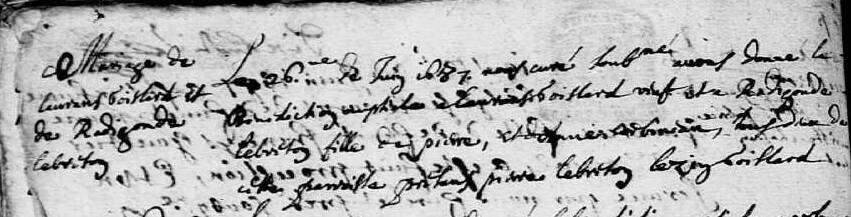 Mariage de
laurans boislard et
de Radigonde
lebriton
Le 26.me de Juin 1687 nous curé soubne avons donné la
benediction nuptiale a laurans boislard veuf et a Radigonde
lebriton fille de pierre, et de tous deux de
cette parroisse presens pierre lebriton boislard